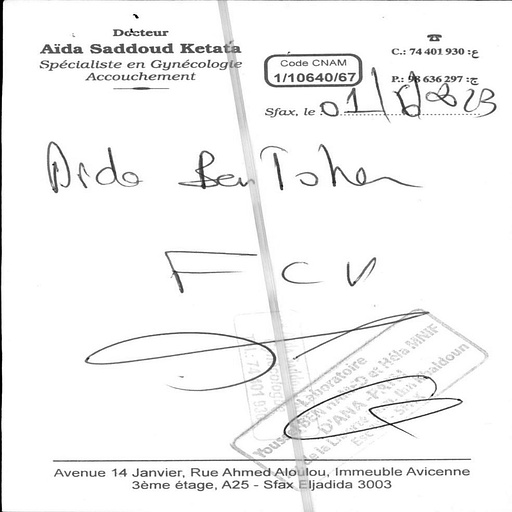 Docteur
Aïda Saddoud Ketata
Spécialiste en Gynécologie
Accouchement
Code CNAM
1/10640/67
☎
C.: 74 401 930 :ع
P.: 98 636 297 :ع
Sfax, le : 01/
Aida Ben Taher
F C V
Laboratoire
D'ANA
Avenue 14 Janvier, Rue Ahmed Aloulou, Immeuble Avicenne
3ème étage, A25 - Sfax Eljadida 3003